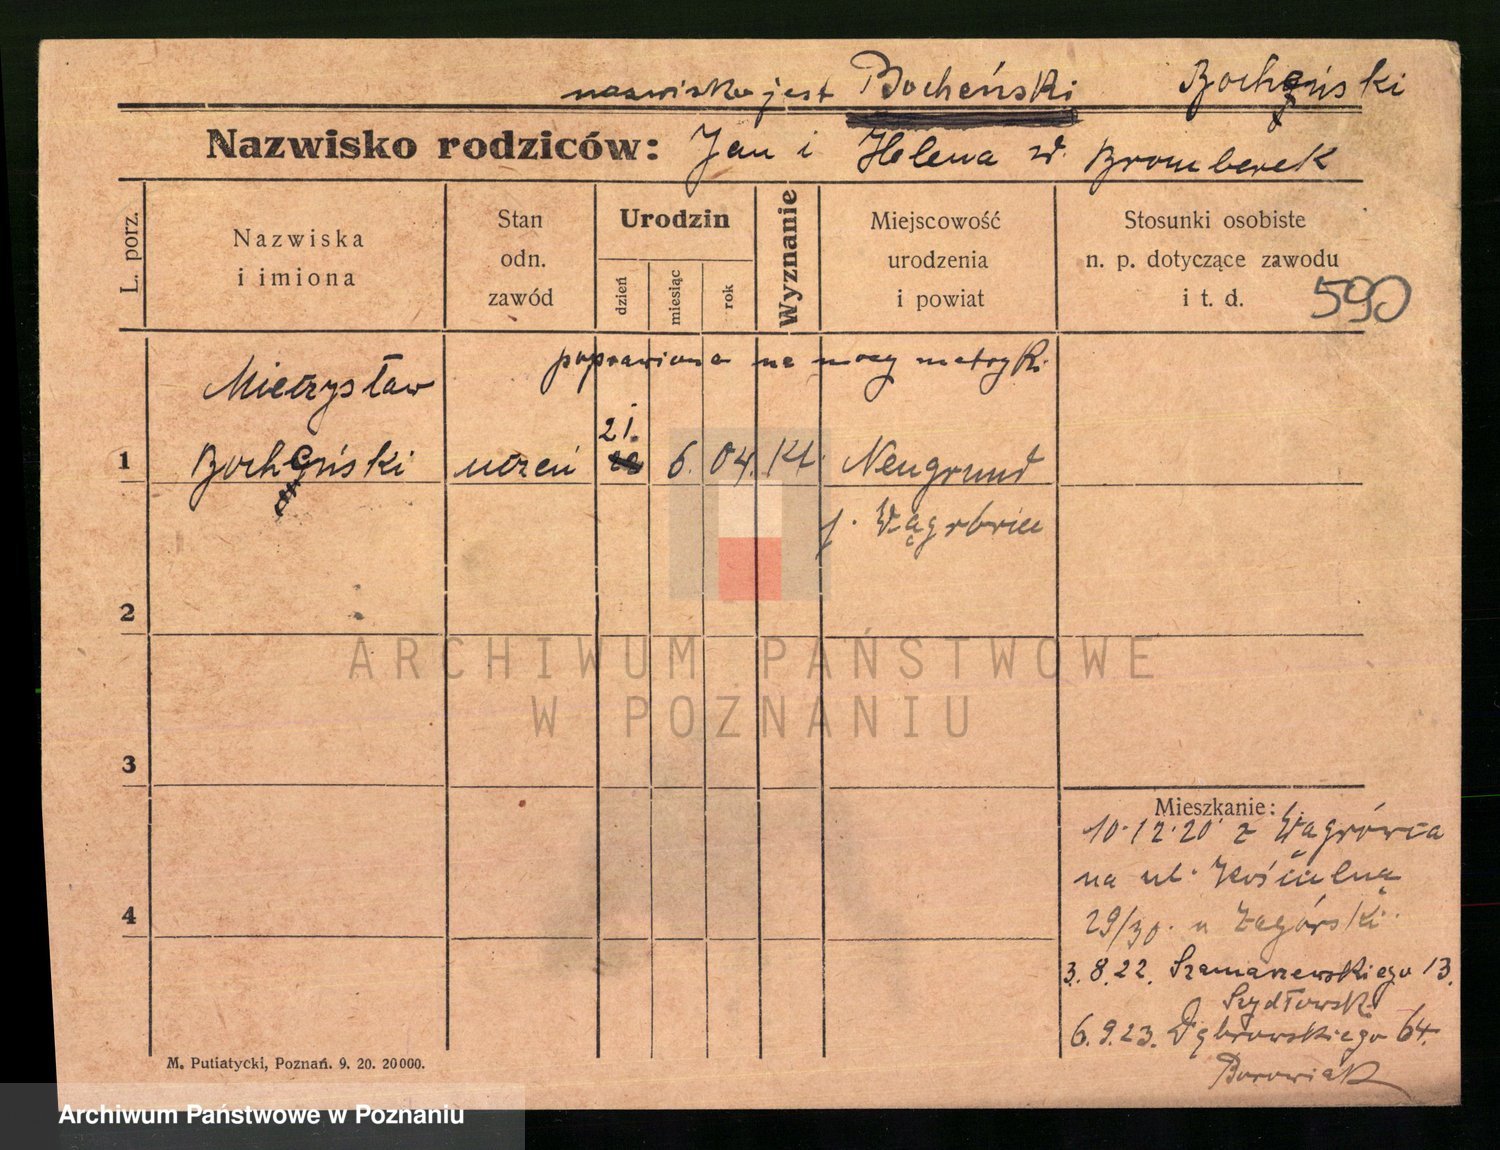 nazwisko jest Bocheński Bocheński
Nazwisko rodziców: Jan i Helena z d. Bromberek
L. porz.
Nazwiska
i imiona
Stan
odn.
zawód
Urodzin
dzień
miesiąc
rok
Wyznanie
Miejscowość
urodzenia
i powiat
Stosunki osobiste
n. p. dotyczące zawodu
i t. d.
590
poprawiono na mocy metryki.
Mieczysław
21.
1 Bocheński uczeń 6. 04. Kt. Neugrund
p. Wągrówiec
2
3
4
ARCHIWUM PAŃSTWOWE
W POZNANIU
Mieszkanie:
10.12.20 z Wągrówca
na ul. Kościelną
29/30. u Zagórski.
3.8.22. Szamarzewskiego 13.
Szydłowski
6.9.23. Dąbrowskiego 64.
Borowiak
M. Putiatycki, Poznań. 9. 20. 20000.
Archiwum Państwowe w Poznaniu